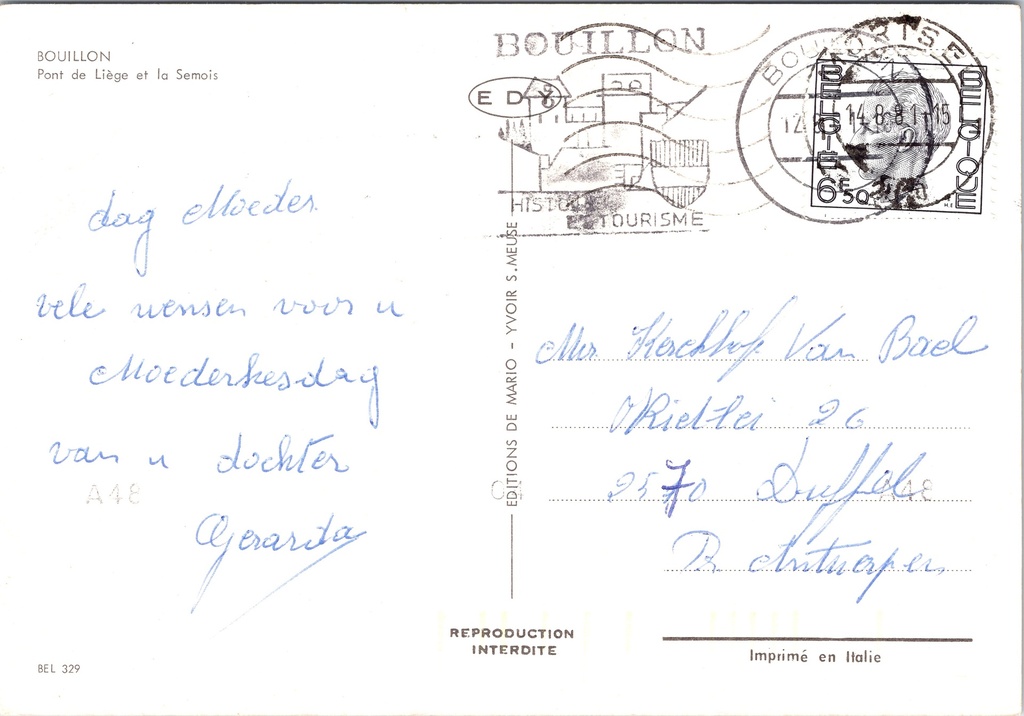 BOUILLON
Pont de Liège et la Semois
dag Moeder
vele wensen voor u
Moederkesdag
van u dochter
Gerarda
A48
BEL 329
BOUILLON
EDY
HISTO
TOURISME
EDITIONS DE MARIO - YVOIR S. MEUSE
REPRODUCTION
INTERDITE
BOUILLON
MORTSEL
14.8.81-15
12
BELGIË BELGIQUE
6F50
Mvr Kerckhof Van Bael
Rietlei 26
2570 Duffel
A48
Pr Antwerpen
Imprimé en Italie